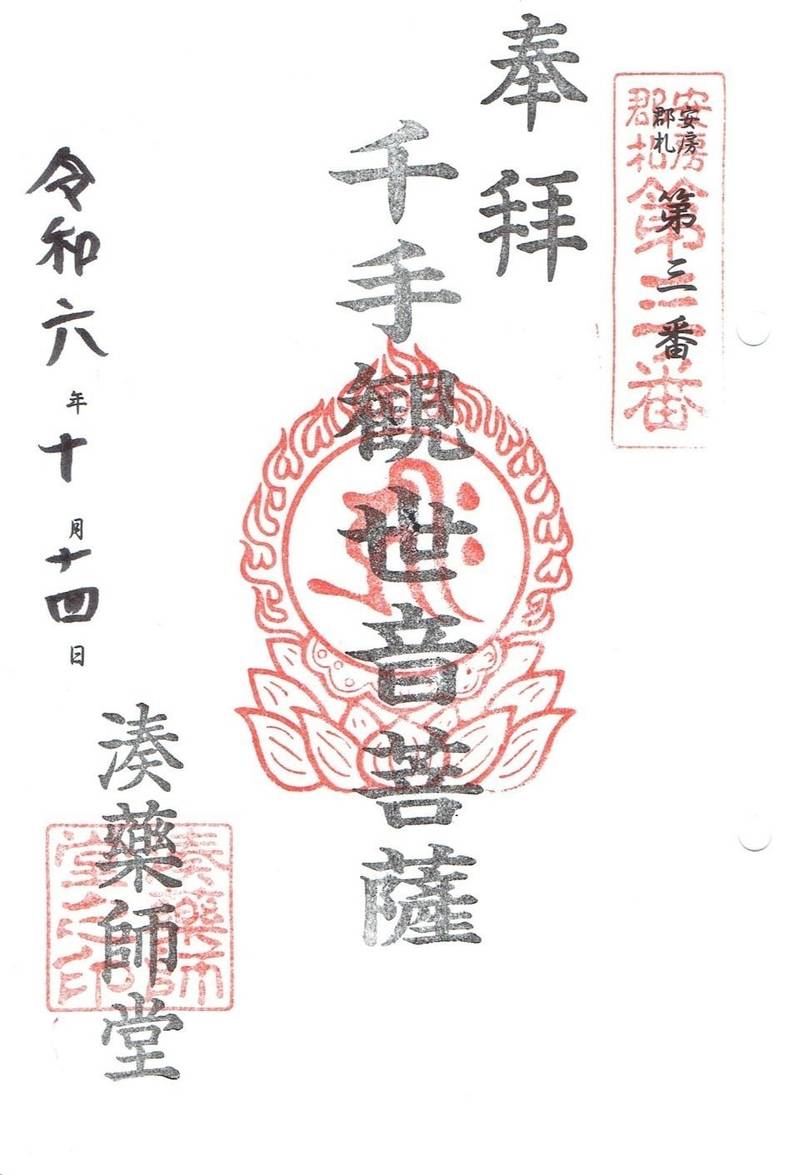 安房
郡札
第三番
安房
郡札
第三番
奉拝
千手観世音菩薩
令和六年十月十四日
湊藥師堂
湊藥師
堂之印